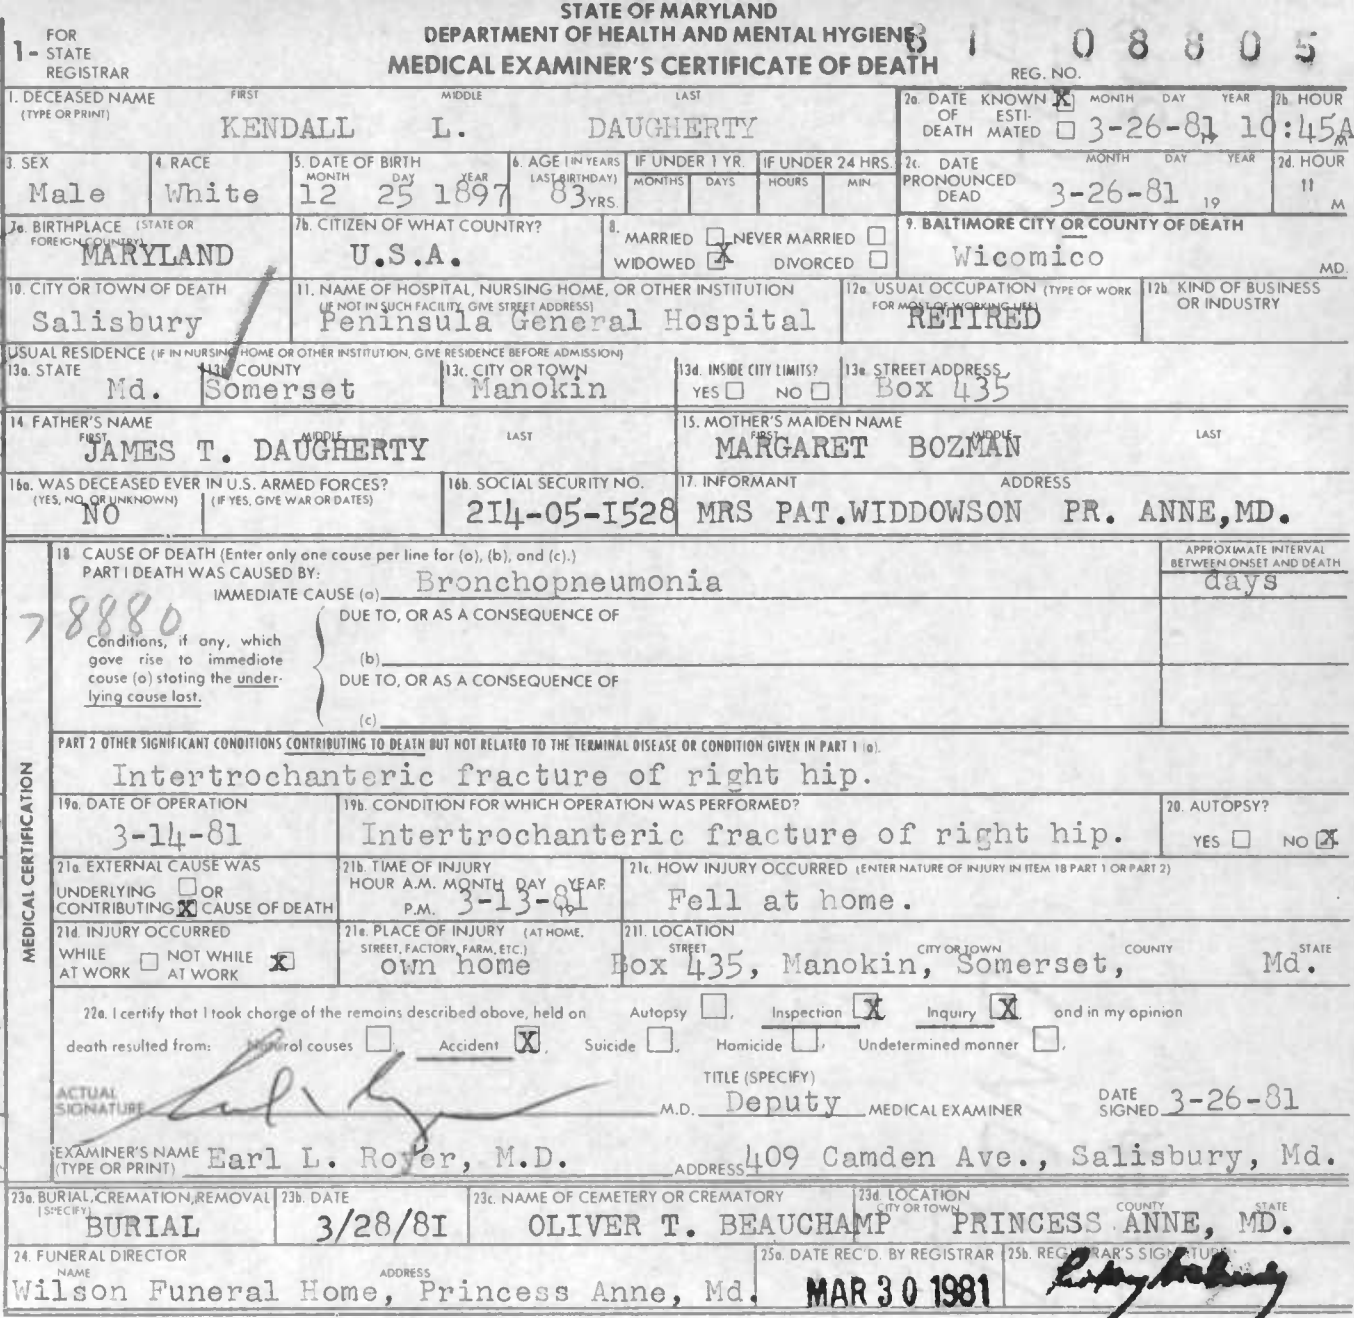 STATE OF MARYLAND
DEPARTMENT OF HEALTH AND MENTAL HYGIENE
81 08805
1- FOR STATE REGISTRAR
MEDICAL EXAMINER'S CERTIFICATE OF DEATH
REG. NO.
1. DECEASED NAME (TYPE OR PRINT) FIRST MIDDLE LAST
KENDALL L. DAUGHERTY
2a. DATE OF DEATH KNOWN X ESTIMATED MONTH DAY YEAR 3-26-81 19
2b. HOUR 10:45A M
3. SEX Male
4. RACE White
5. DATE OF BIRTH MONTH DAY YEAR 12 25 1897
6. AGE (IN YEARS LAST BIRTHDAY) 83 YRS.
IF UNDER 1 YR. MONTHS DAYS
IF UNDER 24 HRS. HOURS MIN
2c. DATE PRONOUNCED DEAD MONTH DAY YEAR 3-26-81 19
2d. HOUR " M
7a. BIRTHPLACE (STATE OR FOREIGN COUNTRY) MARYLAND
7b. CITIZEN OF WHAT COUNTRY? U.S.A.
8. MARRIED NEVER MARRIED
WIDOWED X DIVORCED
9. BALTIMORE CITY OR COUNTY OF DEATH
Wicomico MD.
10. CITY OR TOWN OF DEATH Salisbury
11. NAME OF HOSPITAL, NURSING HOME, OR OTHER INSTITUTION
(IF NOT IN SUCH FACILITY, GIVE STREET ADDRESS)
Peninsula General Hospital
12a. USUAL OCCUPATION (TYPE OF WORK FOR MOST OF WORKING LIFE) RETIRED
12b. KIND OF BUSINESS OR INDUSTRY
USUAL RESIDENCE (IF IN NURSING HOME OR OTHER INSTITUTION, GIVE RESIDENCE BEFORE ADMISSION)
13a. STATE Md.
13b. COUNTY Somerset
13c. CITY OR TOWN Manokin
13d. INSIDE CITY LIMITS? YES NO
13e. STREET ADDRESS Box 435
14. FATHER'S NAME FIRST MIDDLE LAST
JAMES T. DAUGHERTY
15. MOTHER'S MAIDEN NAME FIRST MIDDLE LAST
MARGARET BOZMAN
16a. WAS DECEASED EVER IN U.S. ARMED FORCES?
(YES, NO, OR UNKNOWN) (IF YES, GIVE WAR OR DATES)
NO
16b. SOCIAL SECURITY NO.
2I4-05-I528
17. INFORMANT ADDRESS
MRS PAT.WIDDOWSON PR. ANNE,MD.
18 CAUSE OF DEATH (Enter only one cause per line for (a), (b), and (c).)
PART I DEATH WAS CAUSED BY:
IMMEDIATE CAUSE (a) Bronchopneumonia
APPROXIMATE INTERVAL BETWEEN ONSET AND DEATH
days
8880
DUE TO, OR AS A CONSEQUENCE OF
Conditions, if any, which gave rise to immediate cause (a) stating the underlying cause last.
(b)
DUE TO, OR AS A CONSEQUENCE OF
(c)
PART 2 OTHER SIGNIFICANT CONDITIONS CONTRIBUTING TO DEATH BUT NOT RELATED TO THE TERMINAL DISEASE OR CONDITION GIVEN IN PART 1 (a).
Intertrochanteric fracture of right hip.
MEDICAL CERTIFICATION
19a. DATE OF OPERATION
3-14-81
19b. CONDITION FOR WHICH OPERATION WAS PERFORMED?
Intertrochanteric fracture of right hip.
20. AUTOPSY?
YES NO X
21a. EXTERNAL CAUSE WAS
UNDERLYING OR
CONTRIBUTING X CAUSE OF DEATH
21b. TIME OF INJURY
HOUR A.M. MONTH DAY YEAR
P.M. 3-13-81 19
21c. HOW INJURY OCCURRED (ENTER NATURE OF INJURY IN ITEM 18 PART 1 OR PART 2)
Fell at home.
21d. INJURY OCCURRED
WHILE AT WORK NOT WHILE AT WORK X
21e. PLACE OF INJURY (AT HOME, STREET, FACTORY, FARM, ETC.)
own home
21f. LOCATION STREET CITY OR TOWN COUNTY STATE
Box 435, Manokin, Somerset, Md.
22a. I certify that I took charge of the remains described above, held on Autopsy, Inspection X Inquiry X and in my opinion
death resulted from: Natural causes, Accident X, Suicide, Homicide, Undetermined manner.
ACTUAL SIGNATURE M.D.
TITLE (SPECIFY)
Deputy MEDICAL EXAMINER
DATE SIGNED 3-26-81
EXAMINER'S NAME (TYPE OR PRINT) Earl L. Royer, M.D.
ADDRESS 409 Camden Ave., Salisbury, Md.
23a. BURIAL, CREMATION, REMOVAL (SPECIFY) BURIAL
23b. DATE 3/28/8I
23c. NAME OF CEMETERY OR CREMATORY
OLIVER T. BEAUCHAMP
23d. LOCATION CITY OR TOWN COUNTY STATE
PRINCESS ANNE, MD.
24. FUNERAL DIRECTOR
NAME ADDRESS
Wilson Funeral Home, Princess Anne, Md.
25a. DATE REC'D. BY REGISTRAR
MAR 30 1981
25b. REGISTRAR'S SIGNATURE